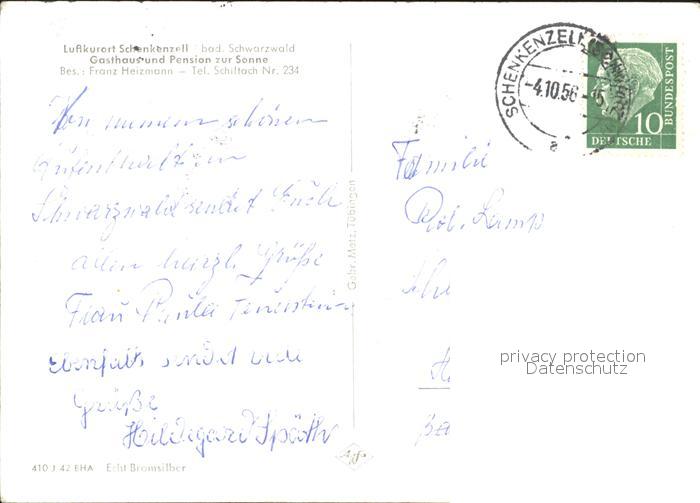 Luftkurort Schenkenzell / bad. Schwarzwald
Gasthaus und Pension zur Sonne
Bes.: Franz Heizmann — Tel. Schiltach Nr. 234
Von meinem schönen
Aufenthalt im
Schwarzwald sendet Euch
allen herzl. Grüße
Frau Paula
Ebenfalls sendet viele
Grüße
Hildegard Späth
410 J 42 BHA Echt Bromsilber
Agfa
Gebr. Metz, Tübingen
SCHENKENZELL
-4.10.56-15
a
10
DEUTSCHE
BUNDESPOST
Familie
Rob.
privacy protection
Datenschutz